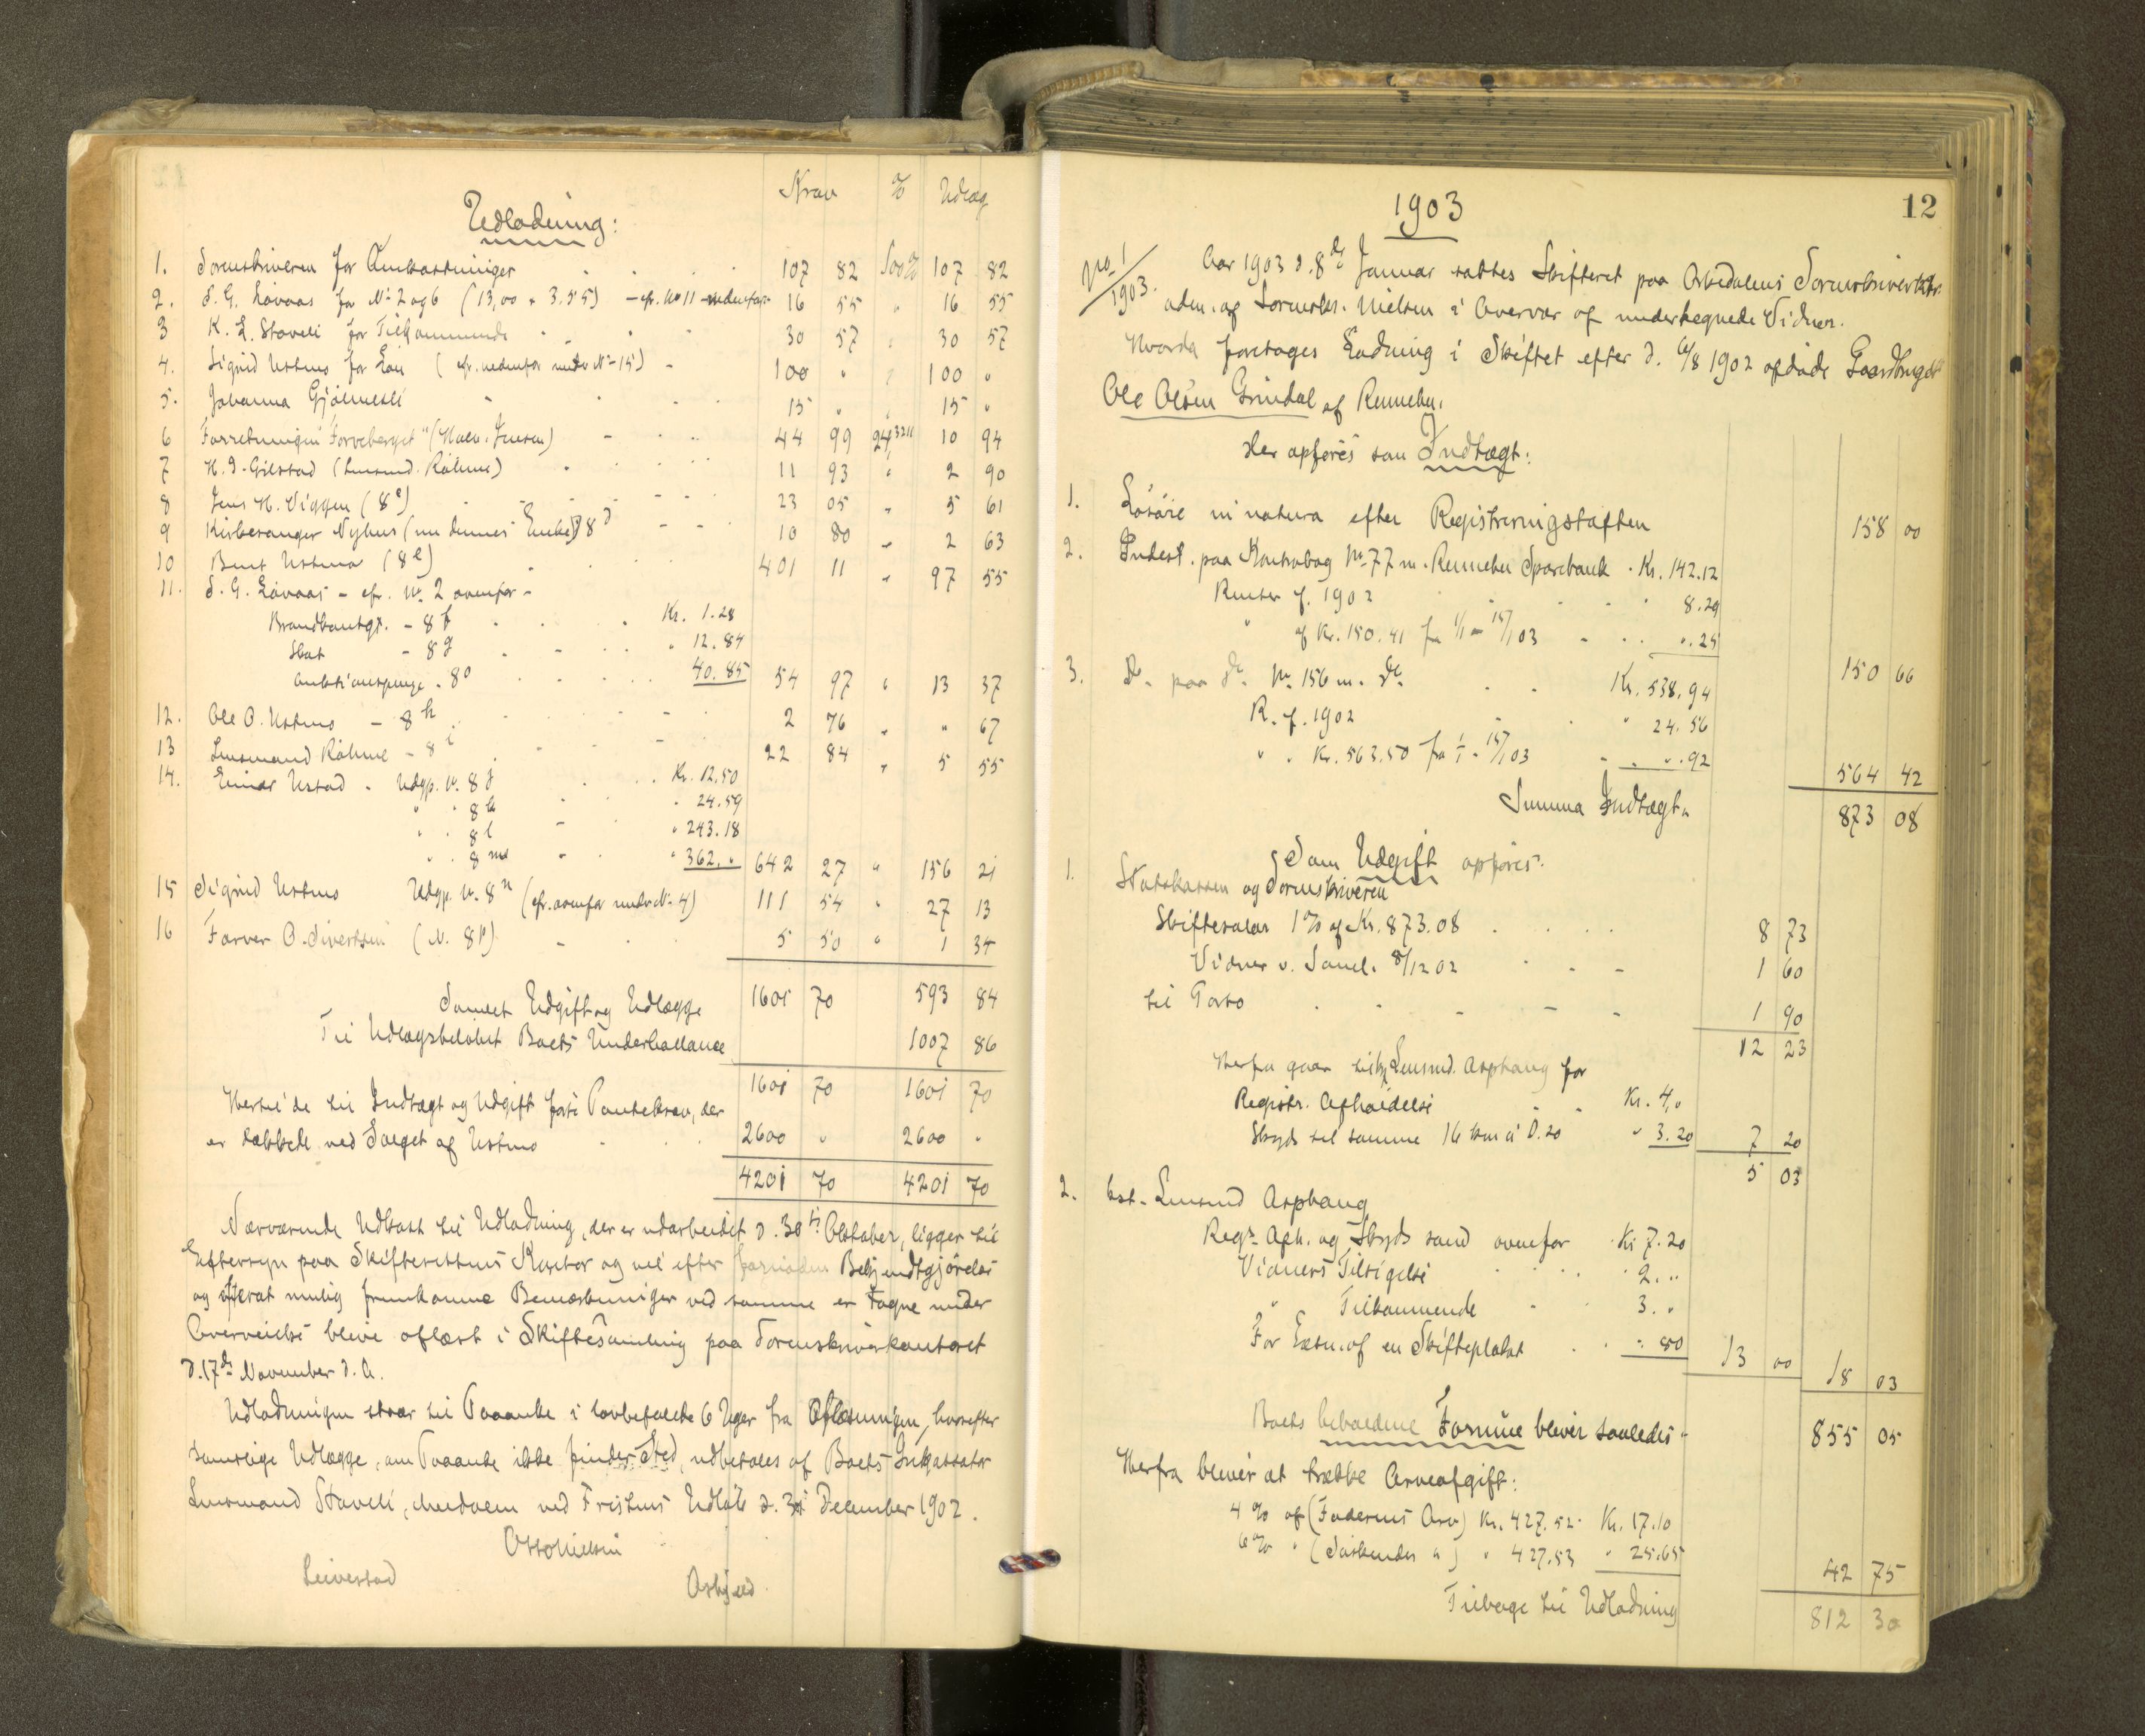 Krav % Udlæg
Udlodning:
1. Sorenskriveren for Omkostninger 107 82 100% 107 82
2. S. G. Løvaas for No 2 og 6 (13,00 + 3.55) - cfr. No 11 nedenfor 16 55 " 16 55
3 K. L. Staveli for Tilkommende 30 57 " 30 57
4. Sigrid Ustmo for Løn (cfr. nedenfor under No 15) - 100 " " 100 "
5. Johanna Gjølmesli 15 " " 15 "
6 Forretningen "Torveberget" - 44 99 24 3211 10 94
7 H. J. Gilstad (Lensmd. Råhme) 11 93 " 2 90
8 Jens H. Viggen (8 c) 23 05 " 5 61
9 Kirkesanger Nyhus (nu dennes Enke) 8 d 10 80 " 2 63
10 Berit Ustmo (8 e) 401 11 " 97 55
11. S. G. Løvaas - cfr. No. 2 ovenfor -
Brandkontgt. - 8 f Kr. 1.28
Skat - 8 g " 12.84
Auktionspenge - 8 o 40.85 54 97 " 13 37
12. Ole O. Ustmo - 8 h 2 76 " " 67
13 Lensmand Råhme - 8 i 22 84 " 5 55
14. Einar Ustad - Udgp. N. 8 j Kr. 12.50
" " 8 k " 24.59
" " 8 l " 243.18
" " 8 m " 362. " 642 27 " 156 21
15 Sigrid Ustmo Udgp. N. 8 n (cfr. ovenfor under No 4) 111 54 " 27 13
16 Farver O. Sivertsen (N. 8 p) 5 50 " 1 34
Samlet Udgift og Udlægge 1601 70 593 84
Til Udlægsbeløbet Boets Underballance 1007 86
1601 70 1601 70
Hertil de til Indtægt og Udgift førte Pantekrav, der
er dækkede ved Salget af Ustmo 2600 " 2600 "
4201 70 4201 70
Nærværende Udkast til Udlodning, der er udarbeidet d. 30te Oktober, ligger til
Eftersyn paa Skifterettens Kontor og vil efter forinden Bekjendtgjørelse
og efterat mulig fremkomne Bemærkninger ved samme er tagne under
Overveielse blive oplæst i Skiftesamling paa Sorenskriverkontoret
d. 17de November d. A.
Udlodningen staar til Paaanke i lovbefalede 6 Uger fra Oplæsningen, hvorefter
samtlige Udlægge, om Paaanke ikke finder Sted, udbetales af Boets Inkassator
Lensmand Staveli, medvem ved Fristens Udløb d. 31 December 1902.
Otto Nielsen
Leivestad

12
1903
No. 1/1903. Aar 1903 d. 8de Januar sattes Skifteret paa Orkedalens Sorenskriverktr.
adm. af Sorenskr. Nielsen i Overvær af undertegnede Vidner.
Hvorda foretoges Lodning i Skiftet efter d. 6/8 1902 afdøde Gaardbruger
Ole Olsen Grindal af Rennebu.
Her opføres som Indtægt:
1. Løsøre in natura efter Registreringstaksten 158 00
2. Indest. paa Kontrabog No 77 m. Rennebu Sparebank - Kr. 142.12
Renter f. 1902 8.29
" af Kr. 150.41 fra 1/1 - 15/1 03 " .25
150 66
3. Do. paa do. No. 156 m. do. Kr. 538.94
R. f. 1902 " 24.56
" " Kr. 563.50 fra 1/1 - 15/1 03 " ".92
564 42
Summa Indtægt 873 08
Som Udgift opføres:
1. Statskassen og Sorenskriveren
Skiftesalær 1% af Kr. 873.08 8 73
Vidner v. Saml. 8/12 02 1 60
til Porto 1 90
12 23
Herfra gaar Lensmd. Asphaug for
Registr. Afholdelse Kr. 4,0
Skyds til samme 16 km à 0.20 " 3.20 7 20
5 03
2. Kst. Lensmd Asphaug
Regs. Afh. og Skyds som ovenfor Kr 7.20
Vidners Tilsigelse 2. "
" Tilkommende 3. "
For Læsn. af en Skifteplakat ". 80 13 00 18 03
Boets beholdne Formue bliver saaledes 855 05
Herfra bliver at trække Arveafgift:
4% af (Faderens Arv) Kr. 427.52 Kr. 17.10
6% " (Søskendes ") " 427.53 " 25.65
42 75
Tilbage til Udlodning 812 30